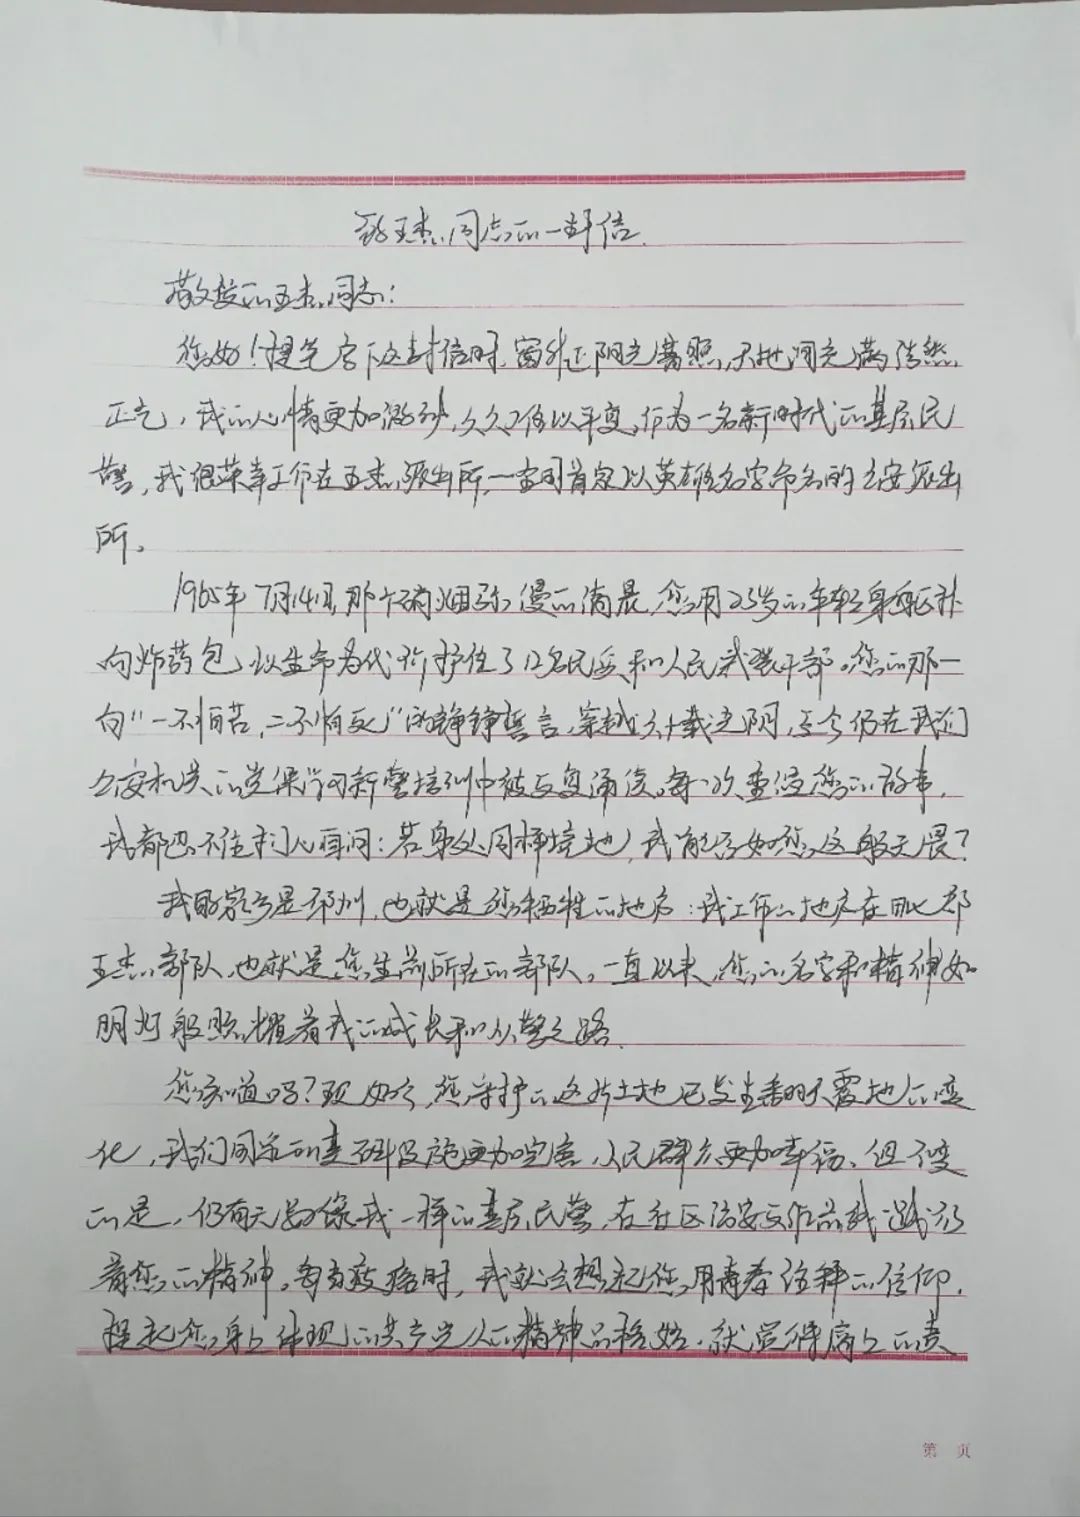 致王杰同志的一封信
敬爱的王杰同志:
您好!提笔写下这封信时,窗外正阳光普照,天地间充满浩然
正气,我的心情更加激动,久久难以平复。作为一名新时代的基层民
警,我很荣幸工作在王杰派出所,一全国首家以英雄名字命名的公安派出
所。
1965年7月14日,那个硝烟弥漫的清晨,您用23岁的年轻身躯扑
向炸药包,以生命为代价护住了12名民兵和人民武装干部。您的那一
句“一不怕苦,二不怕死”的铮铮誓言,穿越六十载光阴,至今仍在我们
公安机关的党课学习新警培训中被反复诵读。每一次重温您的故事,
我都忍不住扪心自问:若身处同样境地,我能否如您这般无畏?
我的家乡是邳州,也就是您牺牲的地方;我工作的地方在毗邻
王杰部队,也就是您生前所在的部队。一直以来,您的名字和精神如
明灯般照耀着我的成长和从警之路。
您知道吗?现如今,您守护的这片土地已发生翻天覆地的变
化,我们国家的基础设施更加完善,人民群众更加幸福。但不变
的是,仍有无数像我一样的基层民警,在社区治安工作中践行
着您的精神。每当疲惫时,我就会想起您用青春诠释的信仰,
想起您身上体现的共产党人的精神品格,就觉得肩上的责
第 页